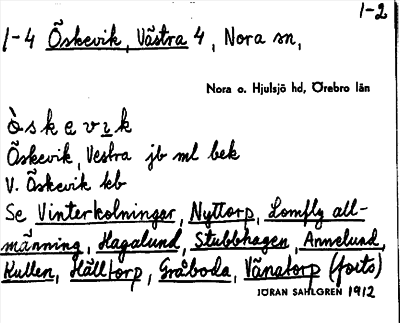 1-2
1-4 Öskevik, Västra 4, Nora sn,
Nora o. Hjulsjö hd, Örebro län
ò s k e v ı k
Öskevik, Vestra jb ml bek
V. Öskevik kb
Se Vinterkolningar, Nyttorp, Lomfly all-
männing, Hagalund, Stubbhagen, Annelund,
Kullen, Hälltorp, Gråboda, Vänatorp (forts)
JÖRAN SAHLGREN 1912